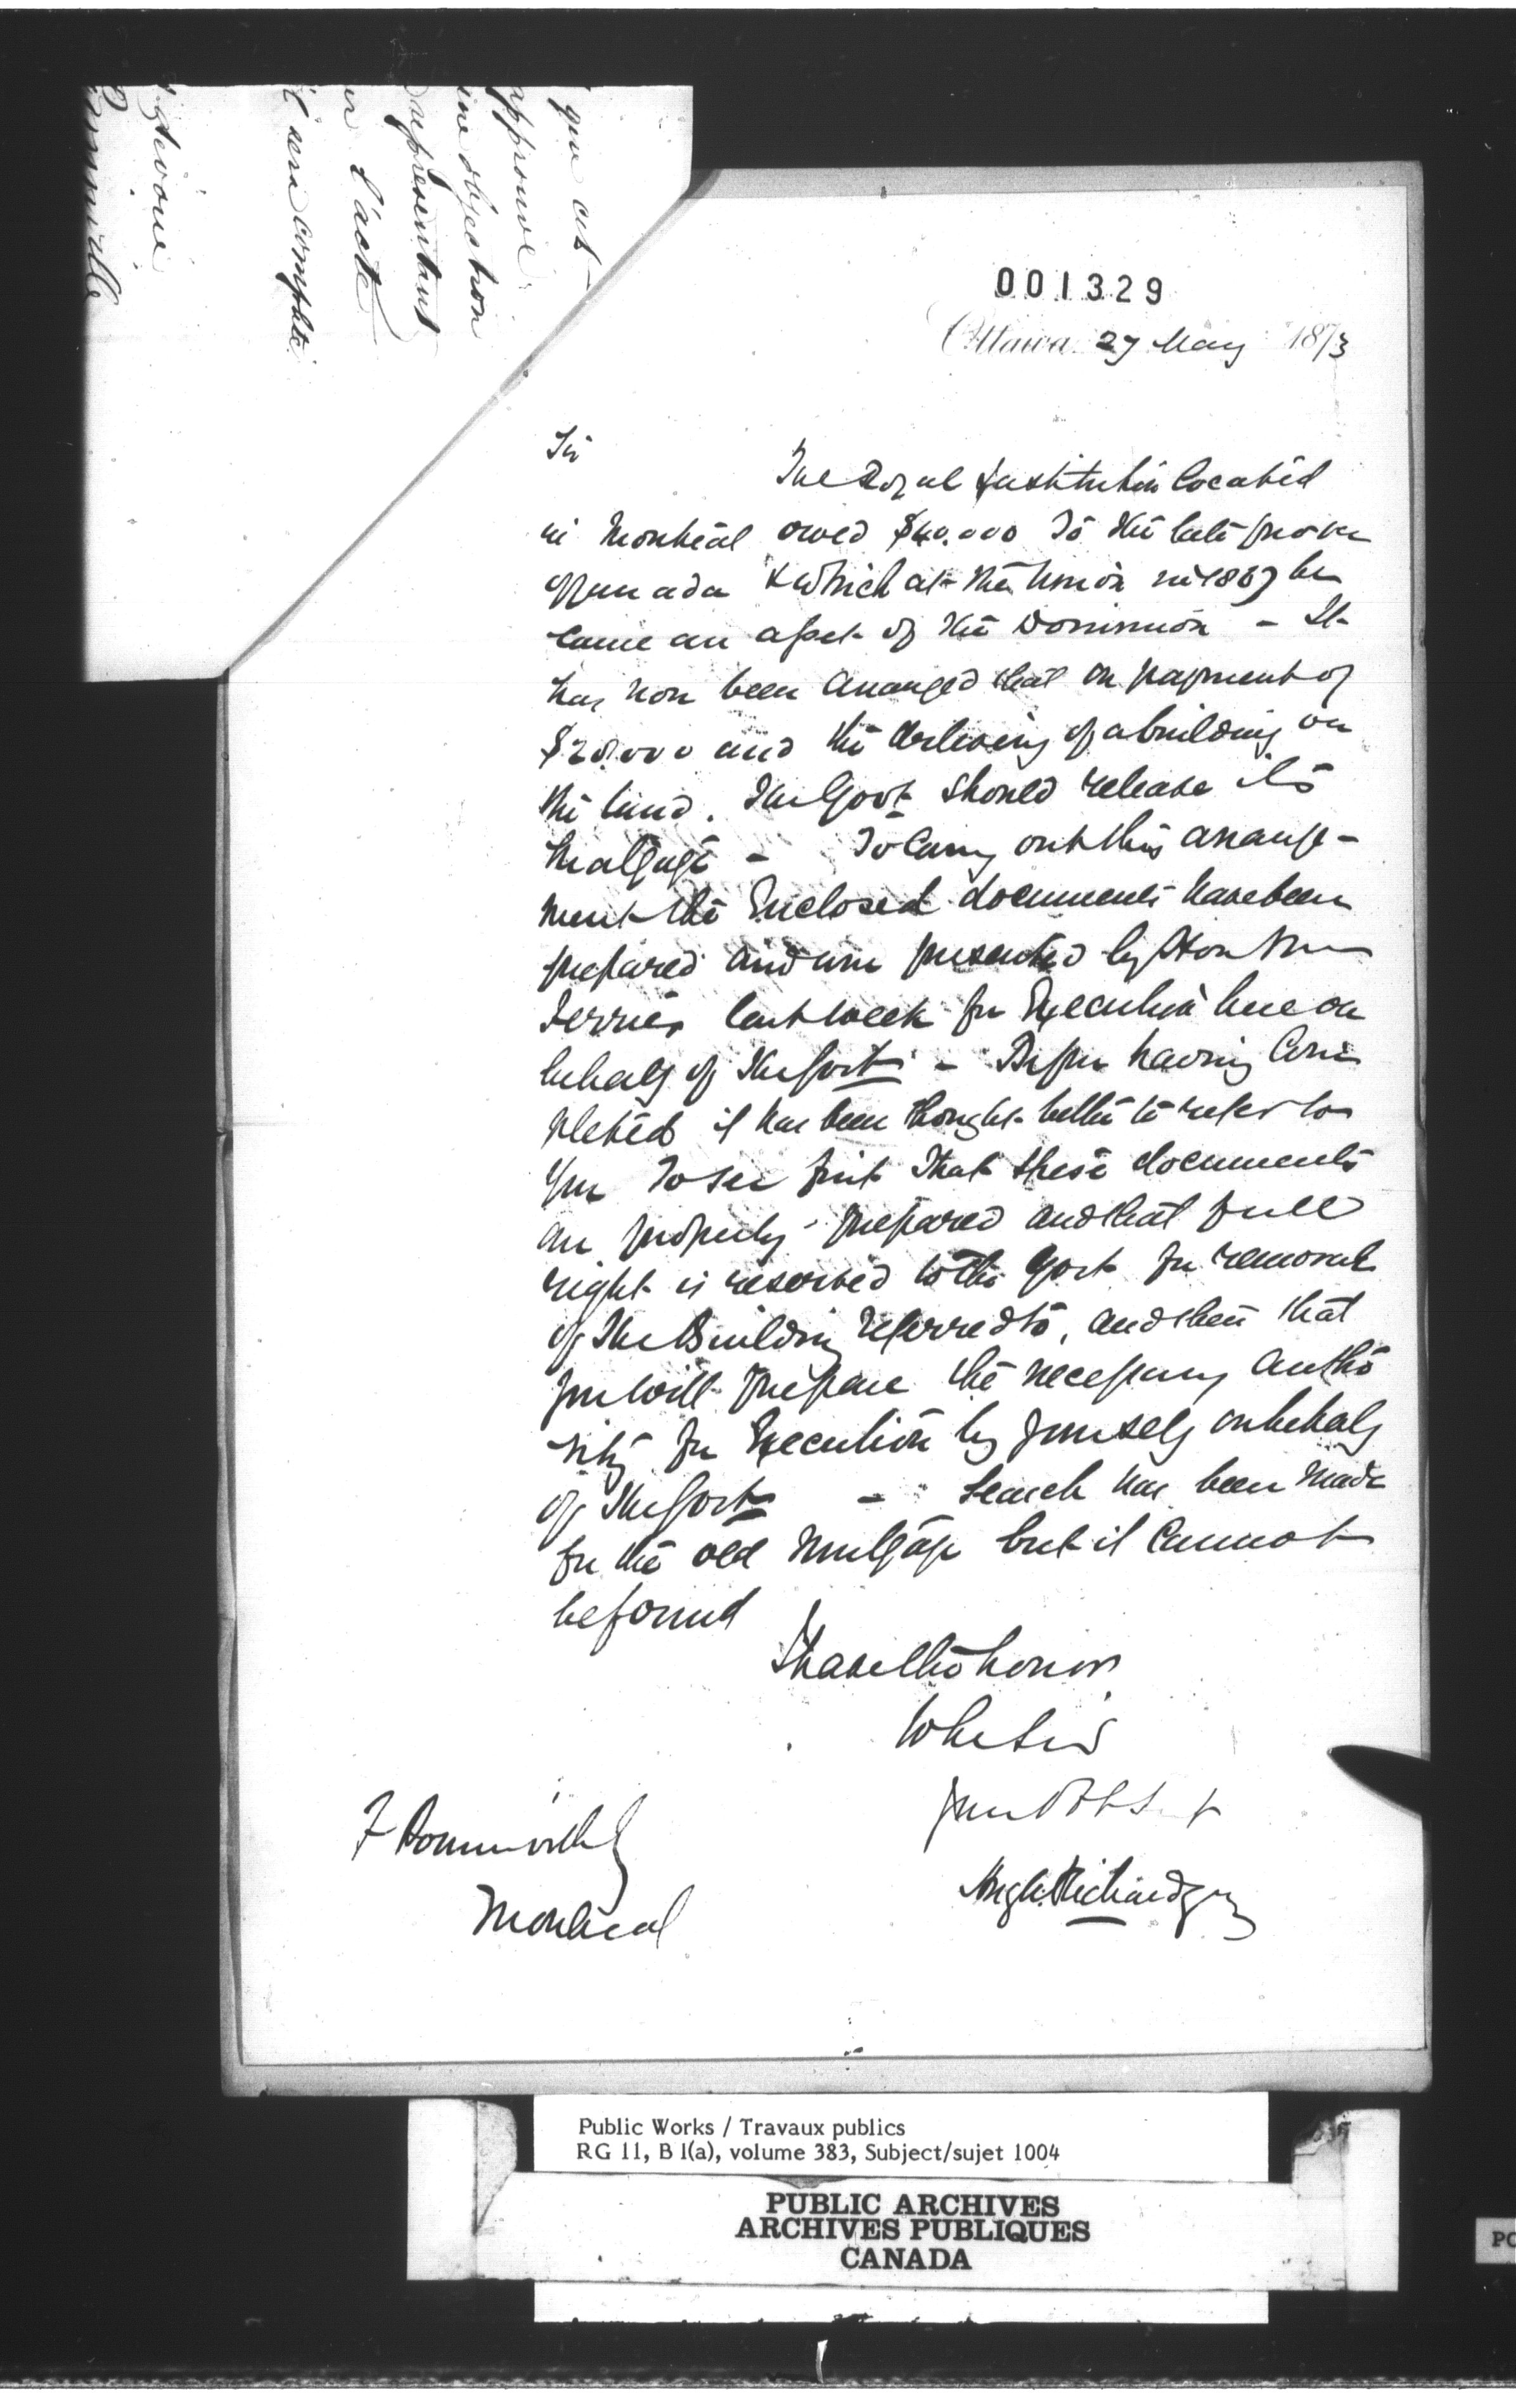 que cet
approuve
une objection
représentant
l'acte
sera complété
001329
Ottawa 27 May 1873
Sir
The Royal Institution located
in Montreal owed $40.000 to the late prov
of Canada & which at the Union in 1867 be
came an asset of the Dominion - It
has now been arranged that on payment of
$20.000 and the of a building on
the land. The Govt should release its
Mortgage - To carry out this arrange-
ment the Enclosed documents have been
prepared and were presented by Hon Mr
Ferrier last week for Execution here on
behalf of the Govt - Before having Com
pleted it has been thought better to refer to
you to see first that these documents
are properly prepared and that full
right is reserved to the Govt for removal
of the Building referred to, and then that
you will prepare the necessary autho
rity for Execution by yourself on behalf
of the Govt - Search has been made
for the old Mortgage but it cannot
be found
I have the honor
to be Sir
your Obt St
Hugh Richardson
F
Montreal
Public Works / Travaux publics
RG 11, B 1(a), volume 383, Subject/sujet 1004
PUBLIC ARCHIVES
ARCHIVES PUBLIQUES
CANADA